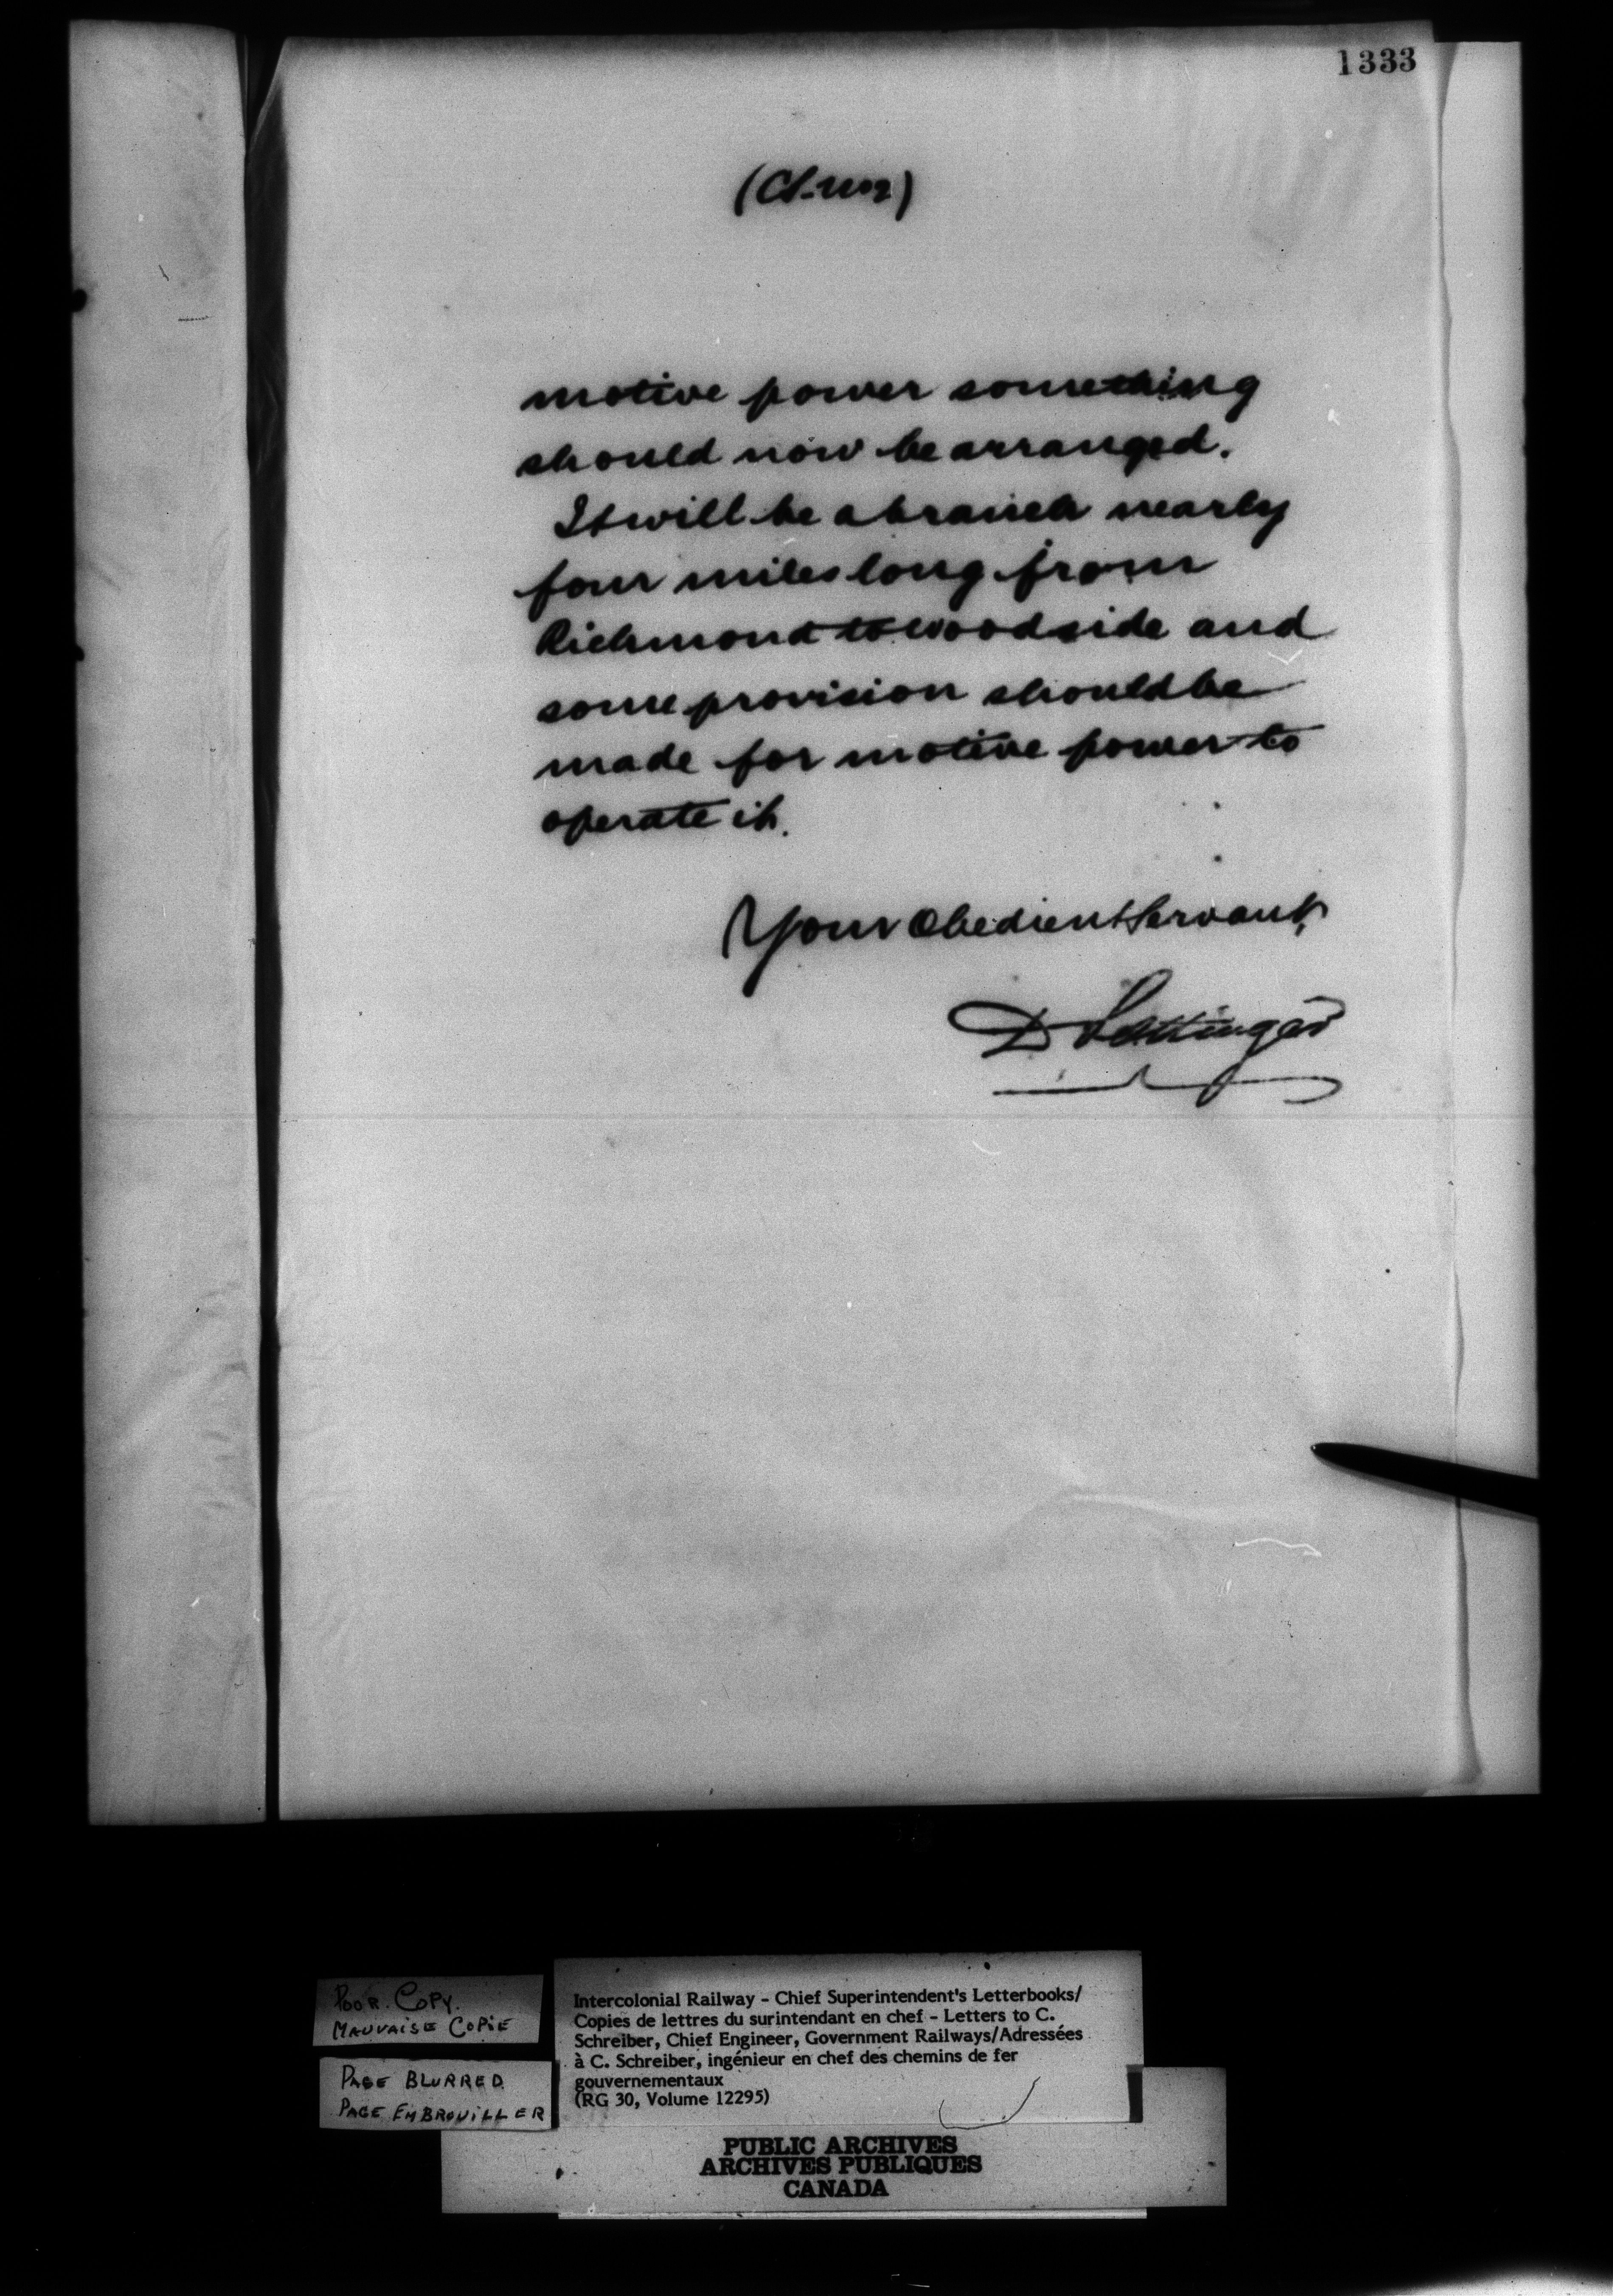 1333
motive power something
should now be arranged.
It will be a branch nearly
four miles long from
Richmond to Woodside and
some provision should be
made for motive power to
operate it.
Your Obedient Servant,
D Pottinger
POOR. COPY.
MAUVAISE COPIE
PAGE BLURRED
PAGE EMBROUILLER
Intercolonial Railway - Chief Superintendent's Letterbooks/
Copies de lettres du surintendant en chef - Letters to C.
Schreiber, Chief Engineer, Government Railways/Adressées
à C. Schreiber, ingénieur en chef des chemins de fer
gouvernementaux
(RG 30, Volume 12295)
PUBLIC ARCHIVES
ARCHIVES PUBLIQUES
CANADA